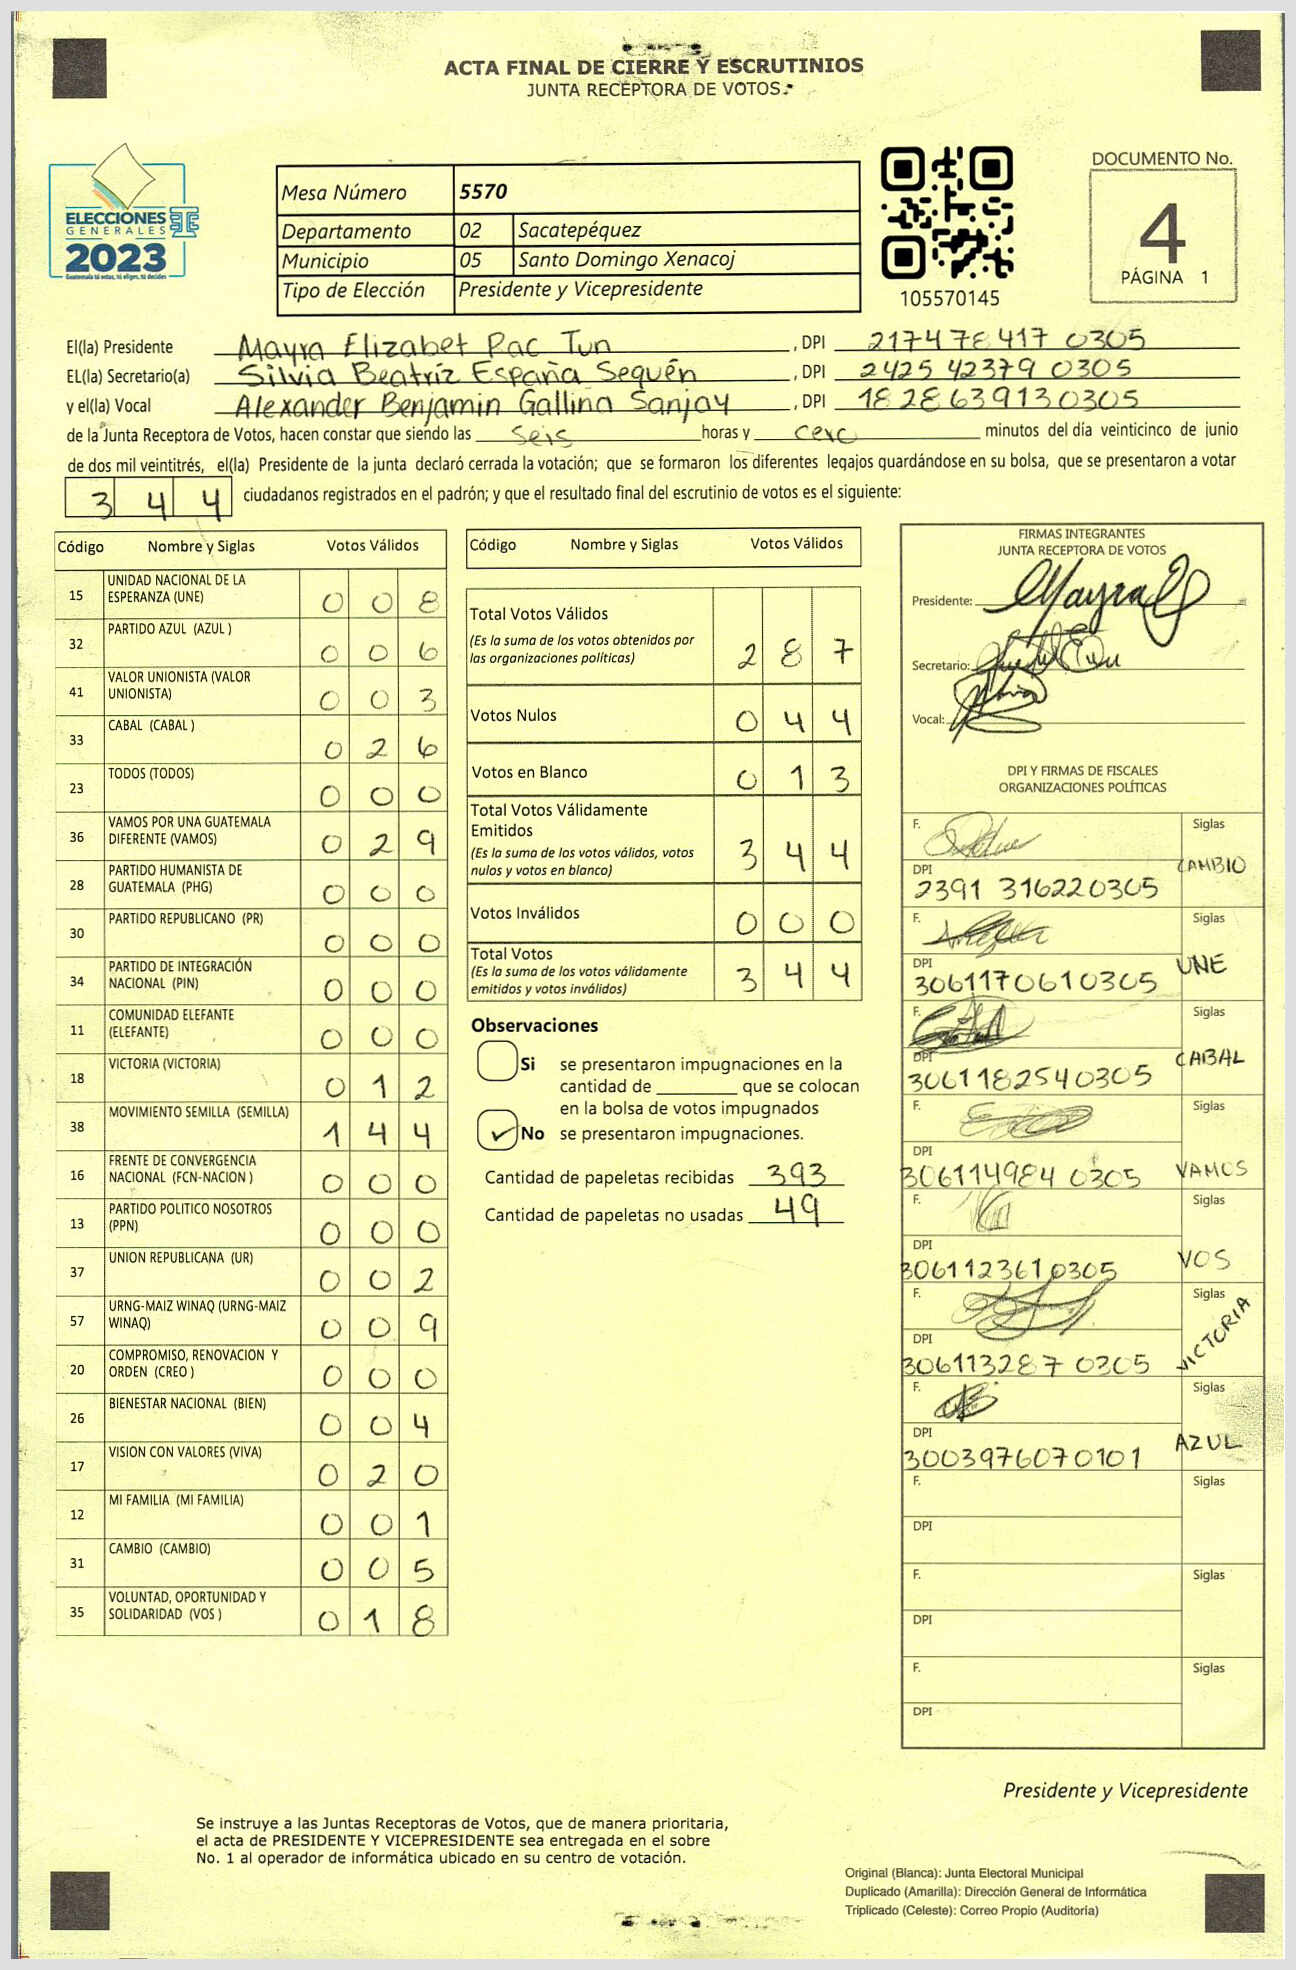 ACTA FINAL DE CIERRE Y ESCRUTINIOS
JUNTA RECEPTORA DE VOTOS
ELECCIONES
GENERALES
2023
Guatemala tú votas, tú eliges, tú decides
Mesa Número 5570
Departamento 02 Sacatepéquez
Municipio 05 Santo Domingo Xenacoj
Tipo de Elección Presidente y Vicepresidente
105570145
DOCUMENTO No.
4
PÁGINA 1
El(la) Presidente Mayra Elizabet Pac Tun , DPI 217478417 0305
EL(la) Secretario(a) Silvia Beatríz España Sequén , DPI 2425 42379 0305
y el(la) Vocal Alexander Benjamin Gallina Sanjay , DPI 1828639130305
de la Junta Receptora de Votos, hacen constar que siendo las seis horas y cero minutos del día veinticinco de junio
de dos mil veintitrés, el(la) Presidente de la junta declaró cerrada la votación; que se formaron los diferentes legajos guardándose en su bolsa, que se presentaron a votar
3 4 4 ciudadanos registrados en el padrón; y que el resultado final del escrutinio de votos es el siguiente:
Código Nombre y Siglas Votos Válidos
15 UNIDAD NACIONAL DE LA ESPERANZA (UNE) 0 0 8
32 PARTIDO AZUL (AZUL ) 0 0 6
41 VALOR UNIONISTA (VALOR UNIONISTA) 0 0 3
33 CABAL (CABAL ) 0 2 6
23 TODOS (TODOS) 0 0 0
36 VAMOS POR UNA GUATEMALA DIFERENTE (VAMOS) 0 2 9
28 PARTIDO HUMANISTA DE GUATEMALA (PHG) 0 0 0
30 PARTIDO REPUBLICANO (PR) 0 0 0
34 PARTIDO DE INTEGRACIÓN NACIONAL (PIN) 0 0 0
11 COMUNIDAD ELEFANTE (ELEFANTE) 0 0 0
18 VICTORIA (VICTORIA) 0 1 2
38 MOVIMIENTO SEMILLA (SEMILLA) 1 4 4
16 FRENTE DE CONVERGENCIA NACIONAL (FCN-NACION ) 0 0 0
13 PARTIDO POLITICO NOSOTROS (PPN) 0 0 0
37 UNION REPUBLICANA (UR) 0 0 2
57 URNG-MAIZ WINAQ (URNG-MAIZ WINAQ) 0 0 9
20 COMPROMISO, RENOVACION Y ORDEN (CREO ) 0 0 0
26 BIENESTAR NACIONAL (BIEN) 0 0 4
17 VISION CON VALORES (VIVA) 0 2 0
12 MI FAMILIA (MI FAMILIA) 0 0 1
31 CAMBIO (CAMBIO) 0 0 5
35 VOLUNTAD, OPORTUNIDAD Y SOLIDARIDAD (VOS ) 0 1 8
Código Nombre y Siglas Votos Válidos
Total Votos Válidos
(Es la suma de los votos obtenidos por
las organizaciones políticas) 2 8 7
Votos Nulos 0 4 4
Votos en Blanco 0 1 3
Total Votos Válidamente
Emitidos
(Es la suma de los votos válidos, votos
nulos y votos en blanco) 3 4 4
Votos Inválidos 0 0 0
Total Votos
(Es la suma de los votos válidamente
emitidos y votos inválidos) 3 4 4
Observaciones
Si se presentaron impugnaciones en la
cantidad de ________ que se colocan
en la bolsa de votos impugnados
✓ No se presentaron impugnaciones.
Cantidad de papeletas recibidas 393
Cantidad de papeletas no usadas 49
FIRMAS INTEGRANTES
JUNTA RECEPTORA DE VOTOS
Presidente: Mayra
Secretario:
Vocal:
DPI Y FIRMAS DE FISCALES
ORGANIZACIONES POLÍTICAS
F. Siglas
DPI CAMBIO
2391 316220305
F. Siglas
DPI UNE
3061170610305
F. Siglas
DPI CABAL
3061182540305
F. Siglas
DPI VAMOS
306114984 0305
F. Siglas
DPI VOS
3061123610305
F. Siglas
DPI VICTORIA
306113287 0305
F. Siglas
DPI AZUL
3003976070101
F. Siglas
DPI
F. Siglas
DPI
F. Siglas
DPI
Presidente y Vicepresidente
Se instruye a las Juntas Receptoras de Votos, que de manera prioritaria,
el acta de PRESIDENTE Y VICEPRESIDENTE sea entregada en el sobre
No. 1 al operador de informática ubicado en su centro de votación.
Original (Blanca): Junta Electoral Municipal
Duplicado (Amarilla): Dirección General de Informática
Triplicado (Celeste): Correo Propio (Auditoría)